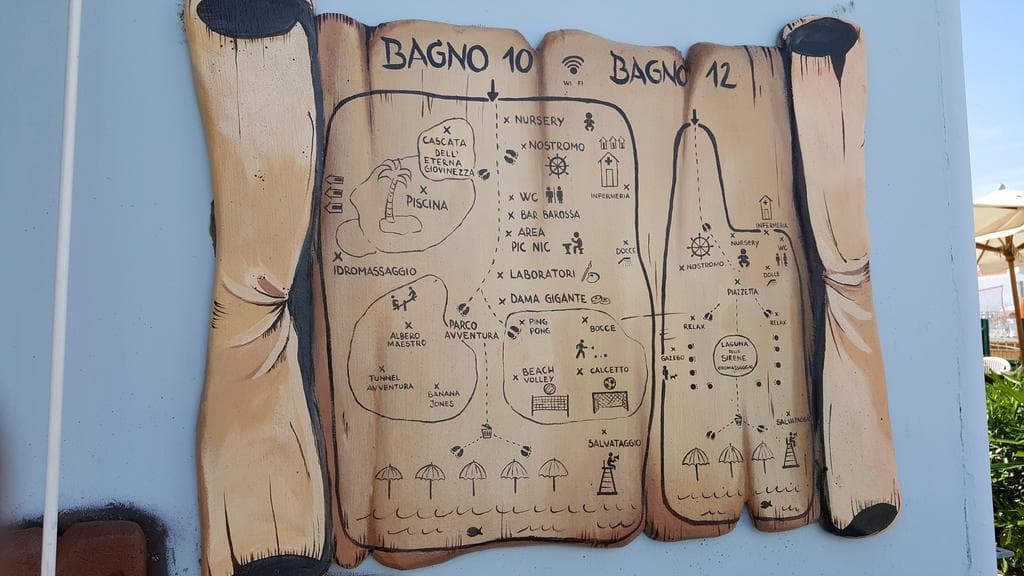 BAGNO 10
WI FI
BAGNO 12
NURSERY
CASCATA
DELL'
ETERNA
GIOVINEZZA
NOSTROMO
PISCINA
INFERMERIA
WC
BAR BAROSSA
AREA
PIC NIC
DOCCE
IDROMASSAGGIO
LABORATORI
DAMA GIGANTE
PARCO
AVVENTURA
ALBERO
MAESTRO
TUNNEL
AVVENTURA
BANANA
JONES
PING
PONG
BOCCE
BEACH
VOLLEY
CALCETTO
SALVATAGGIO
INFERMERIA
NURSERY
WC
NOSTROMO
DOCCE
PIAZZETTA
RELAX
RELAX
GAZEBO
LAGUNA
DELLE
SIRENE
IDROMASSAGGIO
SALVATAGGIO